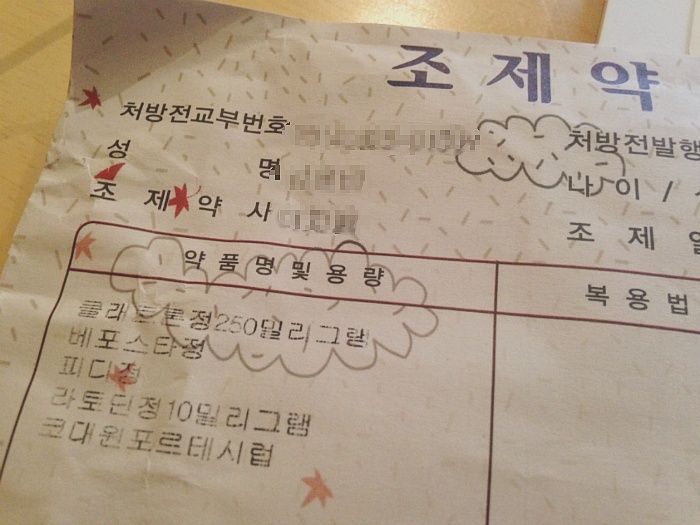 조제약
처방전교부번호
처방전발행
성 명
나이 /
조제약사
조제일
약품명및용량
복용법
클래트론정250밀리그램
베포스타정
피디정
라토딘정10밀리그램
코대원포르테시럽